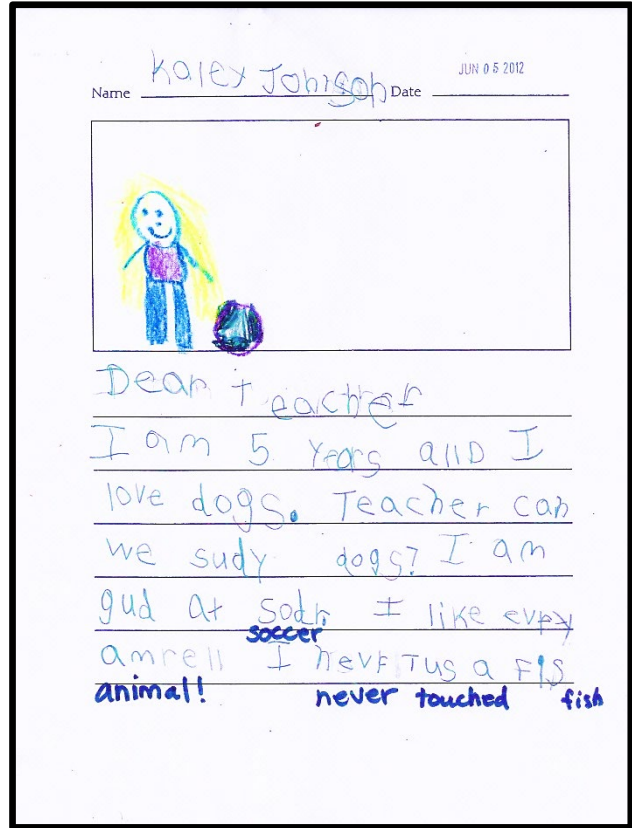 Name Kaley Johnson Date JUN 05 2012
Dear teacher
I am 5 years allD I
love dogs. Teacher can
we sudy dogs? I am
gud at Sodr I like evry
soccer
amrell I hevr Tus a FIS
animal! never touched fish